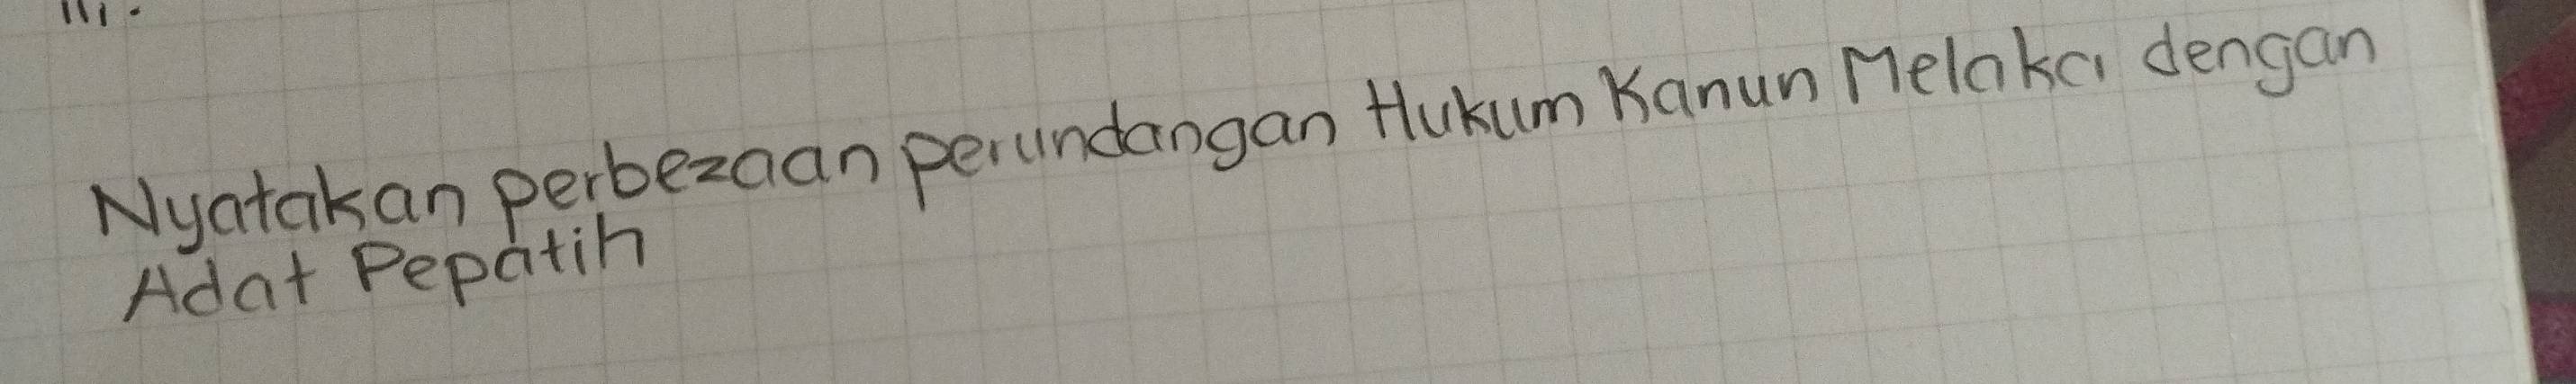 Nyatakan perbezaan perundangan Hukum Kanun Melaka dengan
Adat Pepatih